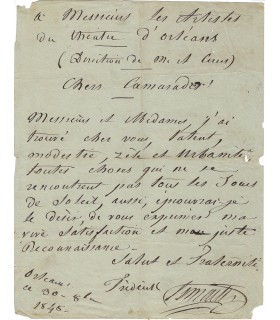 à Messieurs les Artistes
du théâtre d'orléans
(Direction de m. et
Chers Camarades!
Messieurs et Mesdames, j'ai
trouvé chez vous, talent,
modestie, Zèle et Urbanité
toutes choses qui ne se
rencontrent pas tous les Jours
de Soleil, aussi,
je le désir, de vous exprimer ma
vive Satisfaction et ma juste
Reconnaissance.
Salut et Fraternité
Frédérick Lemaître
Orléans
ce 30
1845.